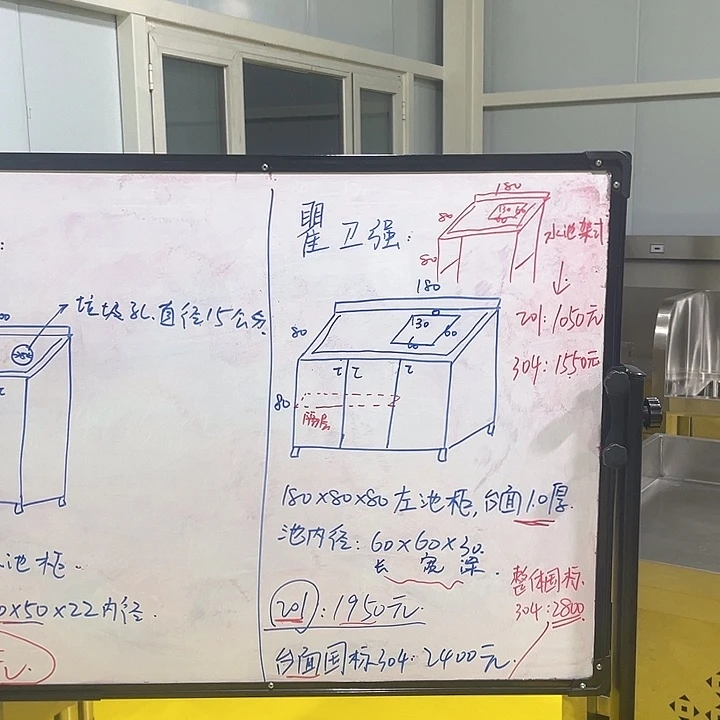 垃圾孔.直径15公分.
池柜.
0×50×22内径.
元.
瞿卫强:
180
80
130
60
60
80
水池架式
201:1050元
304:1550元
180
80
130
60
60
80
隔层
180×80×80左池柜,台面1.0厚.
池内径:60×60×30.
长 宽 深.
201:1950元.
台面国标304:2400元.
整体国标
304:2800